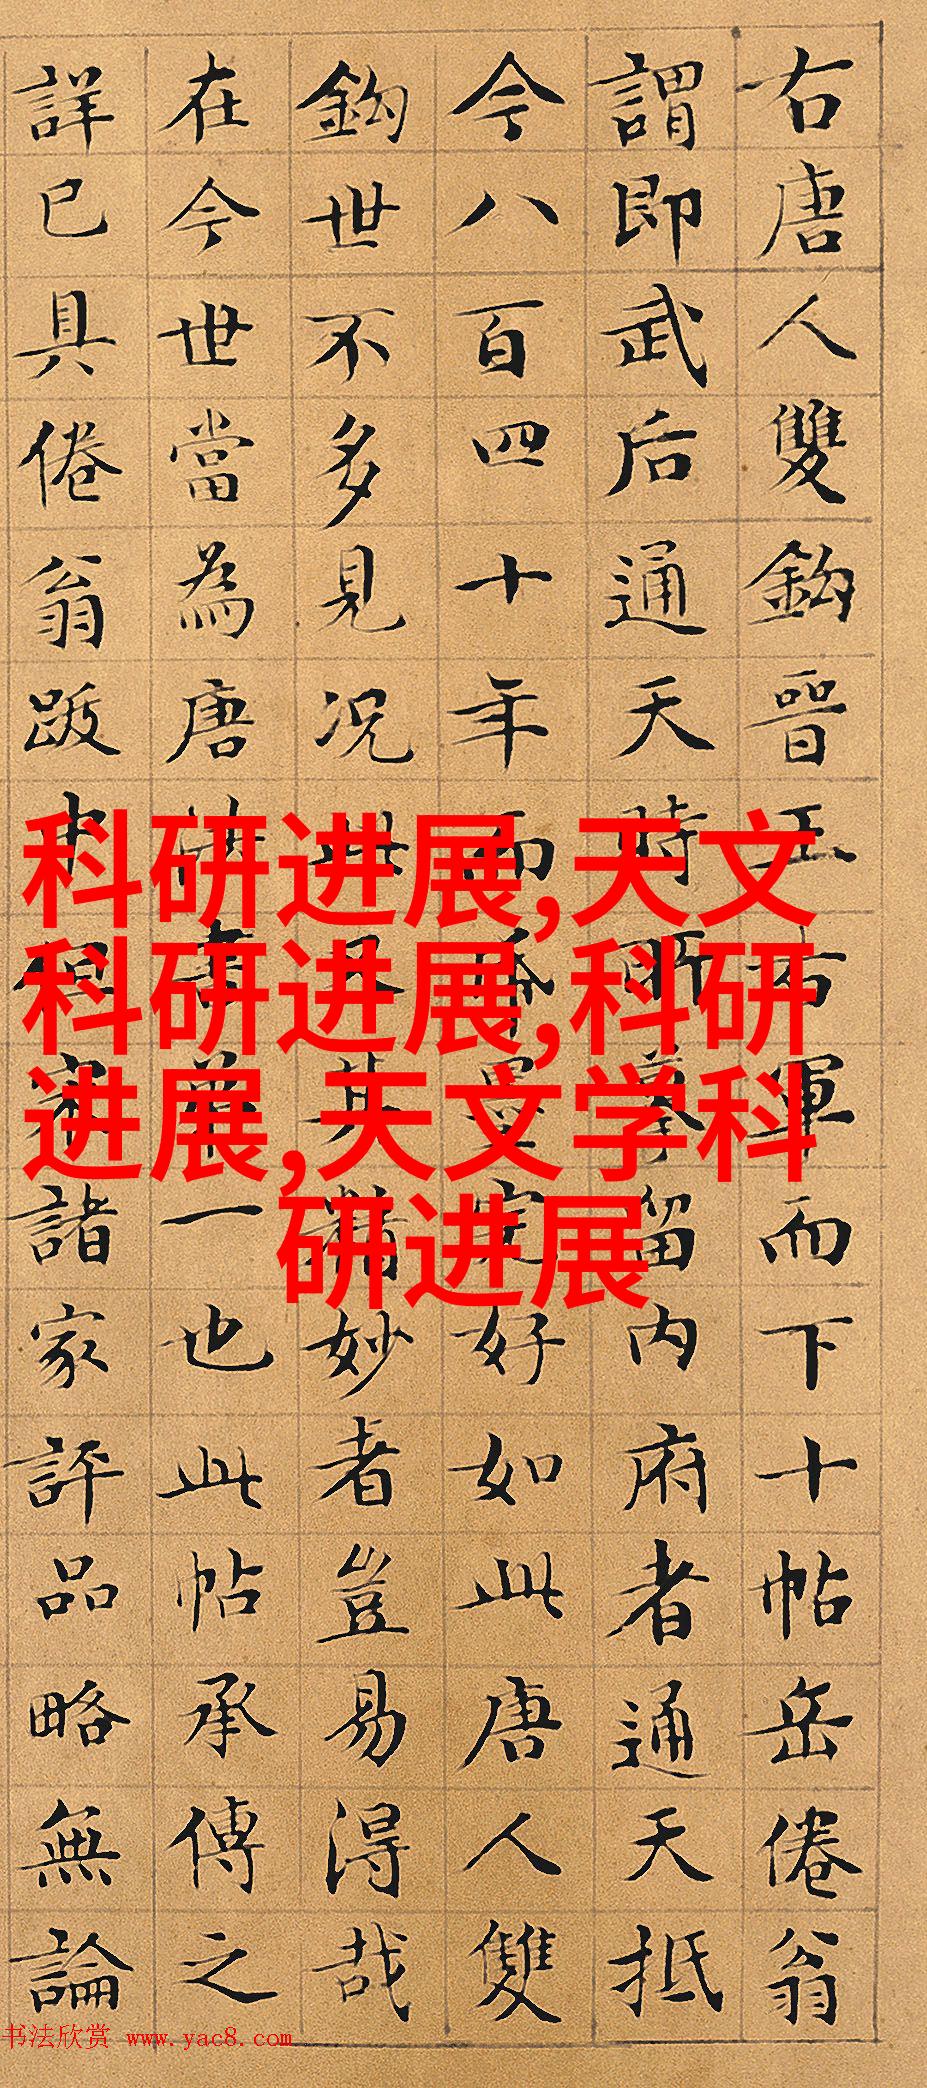 右唐人雙鈎晉王右軍而下十帖岳倦翁
謂即武后通天時所摹留内府者通天抵
今八百四十年而墨完好如此唐人雙
鈎世不多見况此又其精妙者豈易得哉
在今世當為唐法書第一也此帖承傳之
詳已具倦翁跋中但家諸家評品略無論
科研进展,天文
科研进展,科研
进展,天文学科
研进展
书法欣赏 www.yac8.com